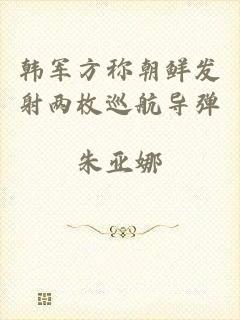 韩军方称朝鲜发
射两枚巡航导弹
朱亚娜